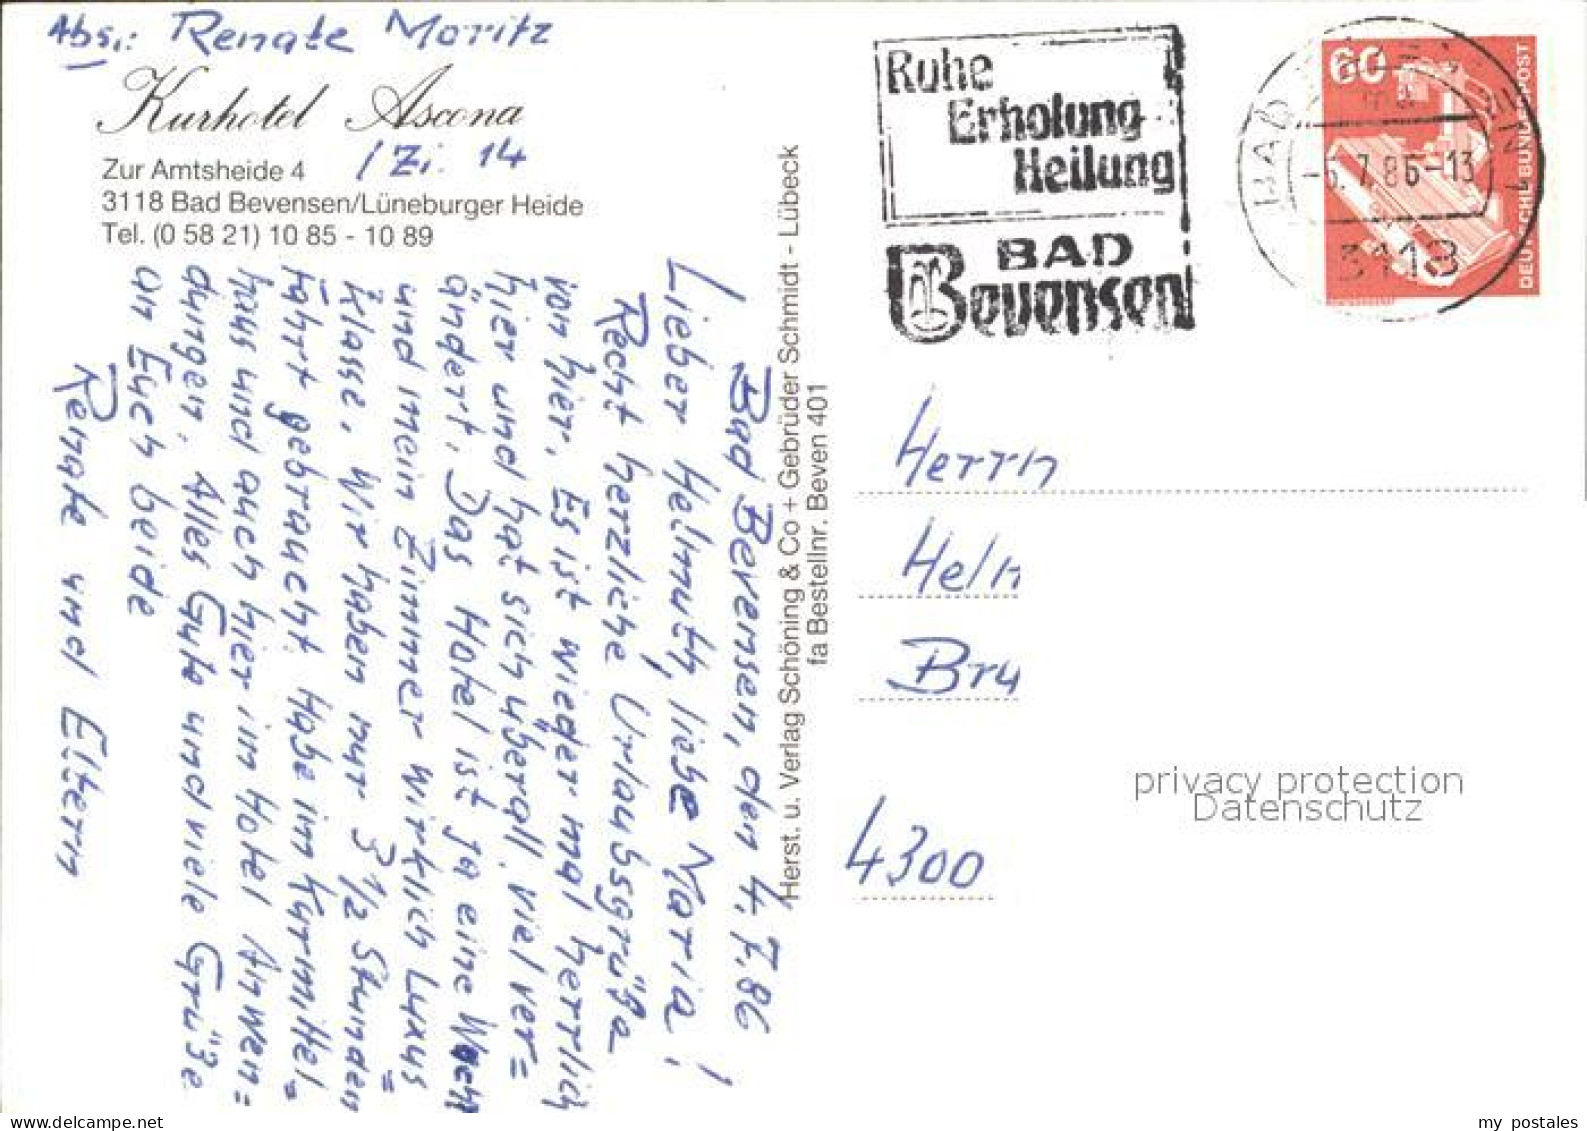 Abs.: Renate Moritz
Kurhotel Ascona
/ Zi. 14
Zur Amtsheide 4
3118 Bad Bevensen/Lüneburger Heide
Tel. (0 58 21) 10 85 - 10 89
Bad Bevensen, den 4.7.86
Lieber Helmuth, liebe Maria!
Recht herzliche Urlaubsgrüße
von hier. Es ist wieder mal herrlich
hier und hat sich überall viel ver=
ändert. Das Hotel ist ja eine
und mein Zimmer wirklich Luxus=
klasse. Wir haben nur 3 1/2 Stunden
Fahrt gebraucht. Habe im Kurmittel=
haus und auch hier im Hotel Anwen=
dungen. Alles Gute und viele Grüße
an Euch beide
Renate und Eltern
Herst. u. Verlag Schöning & Co + Gebrüder Schmidt - Lübeck
fa Bestellnr. Beven 401
Ruhe
Erholung
Heilung
BAD
Bevensen
60
DEUTSCHE BUNDESPOST
BAD BEVENSEN 1
-5.7.86-13
3118
Herrn
Helm
Bru
4300
privacy protection
Datenschutz
my postales